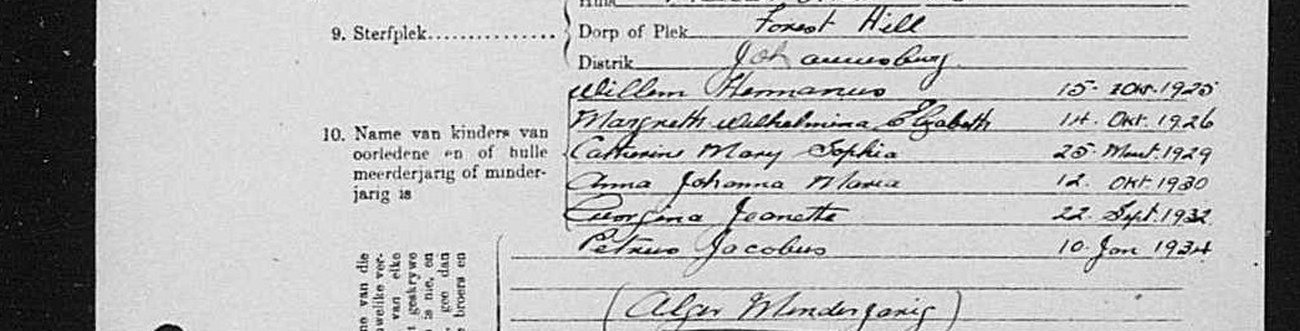 Huis
9. Sterfplek............... Dorp of Plek Forest Hill
Distrik Johannesburg
Willem Hermanus 15 Okt. 1925
Margreth Wilhelmina Elizabeth 14. Okt. 1926
10. Name van kinders van
oorledene en of hulle
meerderjarig of minder-
jarig is
Catherine Mary Sophia 25 Maart. 1929
Anna Johanna Maria 12. Okt. 1930
Georgina Jeanette 22 Sept. 1932
Petrus Jacobus 10 Jan 1934
(Alger Minderjarig)
ne van die
uwelike ver-
van elke
geskrywe
is nie, en
gee dan
broers en